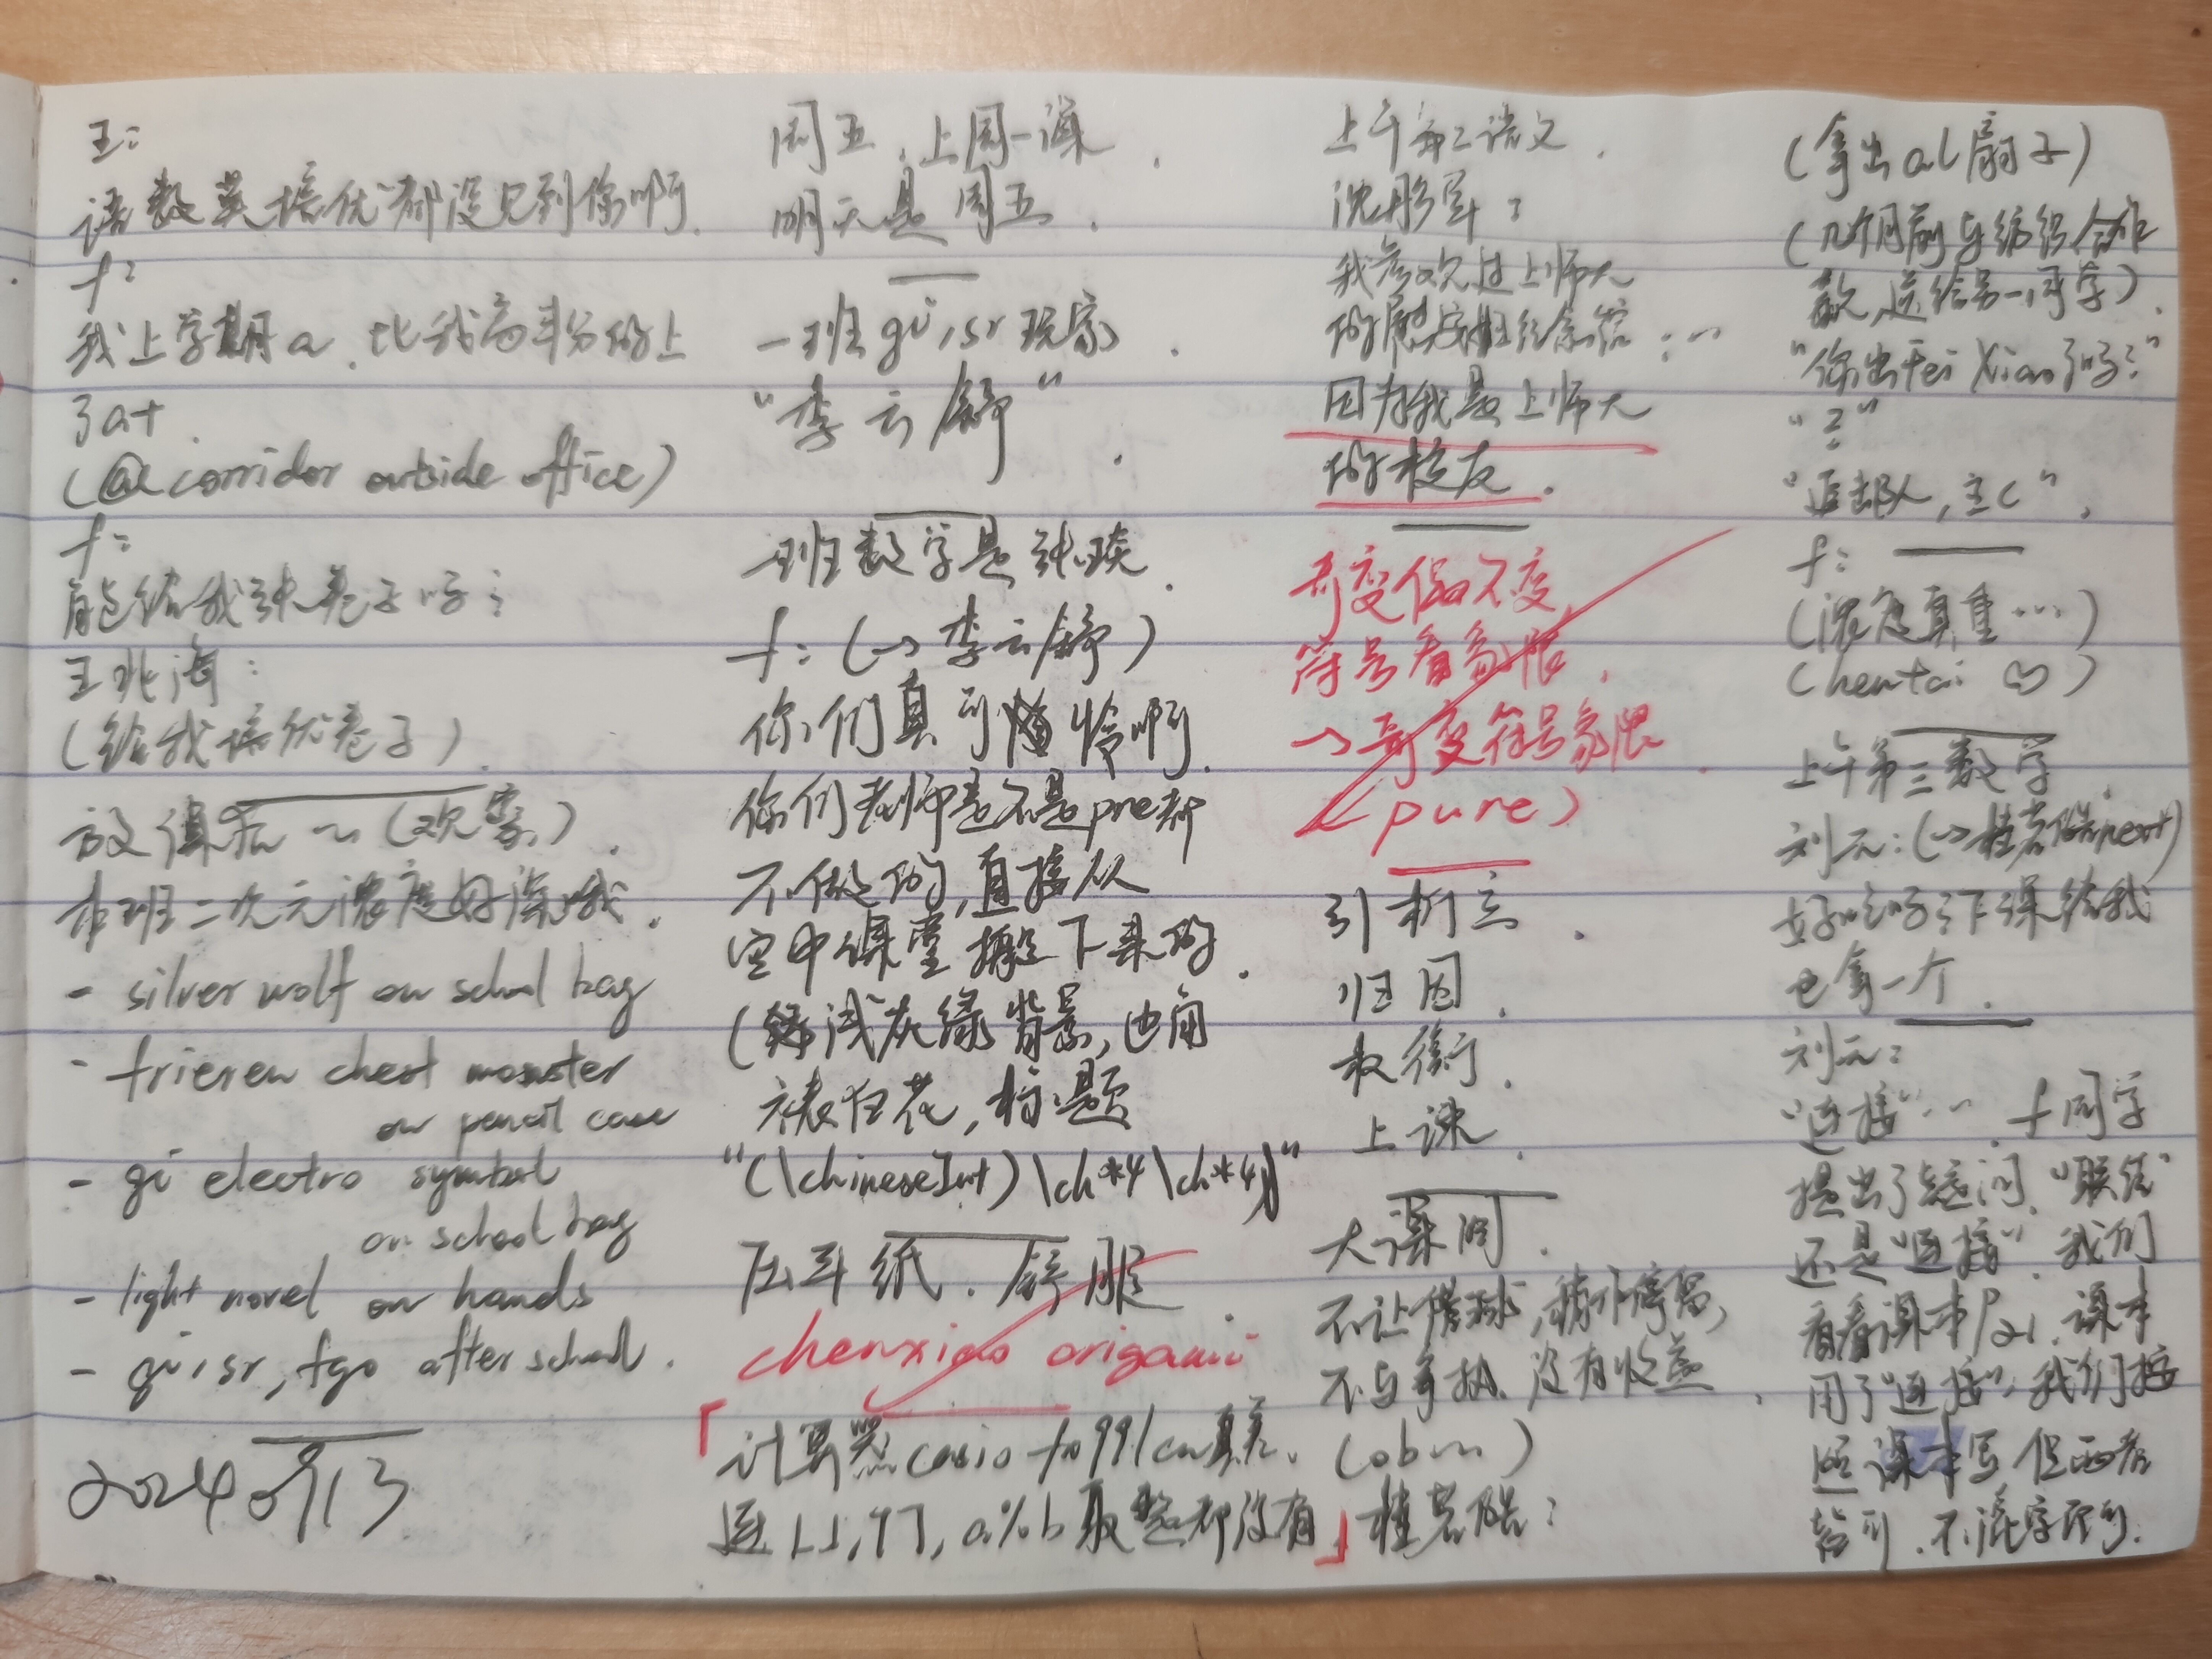 王:
语数英培优都没见到你啊.
f:
我上学期a,比我高年分的上
了at.
(@corridor outside office)
f:
能给我张卷子吗?
王兆海:
(给我培优卷子).
放偶
本班二次元浓度好深哦.
- silver wolf on school bag
- frieren chest monster
on pencil case
- gi electro symbol
on school bag
- light novel on hands
- gi, sr, fgo after school.
2024 0913
周五,上周一课,
明天是周五.
一班gi,sr玩家.
"李云舒".
班数学是张琰.
f: (→李云舒)
你们真可怜啊.
你们老师是不是pre都
不做的,直接从
空中课堂搬下来的.
(浅灰绿背景,边角
花,标题
"(\chineseInt)\ch*4\ch*4)"
压耳纸.舒服.
chenxiao origami
「计算器casio fx991cn真差.
连⌊⌋,⌈⌉,a%b取整都没有」
上午第二语文.
沈彤军:
我喜欢过上师大
的
因为我是上师大
的校友.
奇变偶不变,
符号看象限.
→奇变符号象限.
(pure)
引析立.
归因.
权衡.
上课.
大课间.
不让借球,
不与争执.没有收益.
(ob~)
桂若皓:
(拿出al扇子)
(几个月前与编织合作
款,送给另一同学).
"你出fei xiao了吗?"
"?"
"追击队,主C".
f:
(浓度真重…)
(hentai ♡)
上午第三数学.
刘元:(→桂若皓next)
好吃吗?下课给我
也拿一个.
刘元:
"连接"….f同学
提出了疑问."联结"
还是"连接".我们
看看课本P21.课本
用了"连接".我们按
照课本写.但两者
皆可.不混字即可.